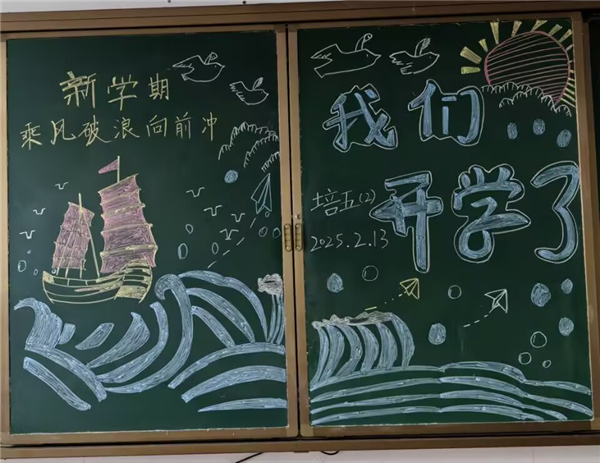 新学期
乘风破浪向前冲
我们
开学了
培五(2)
2025.2.13